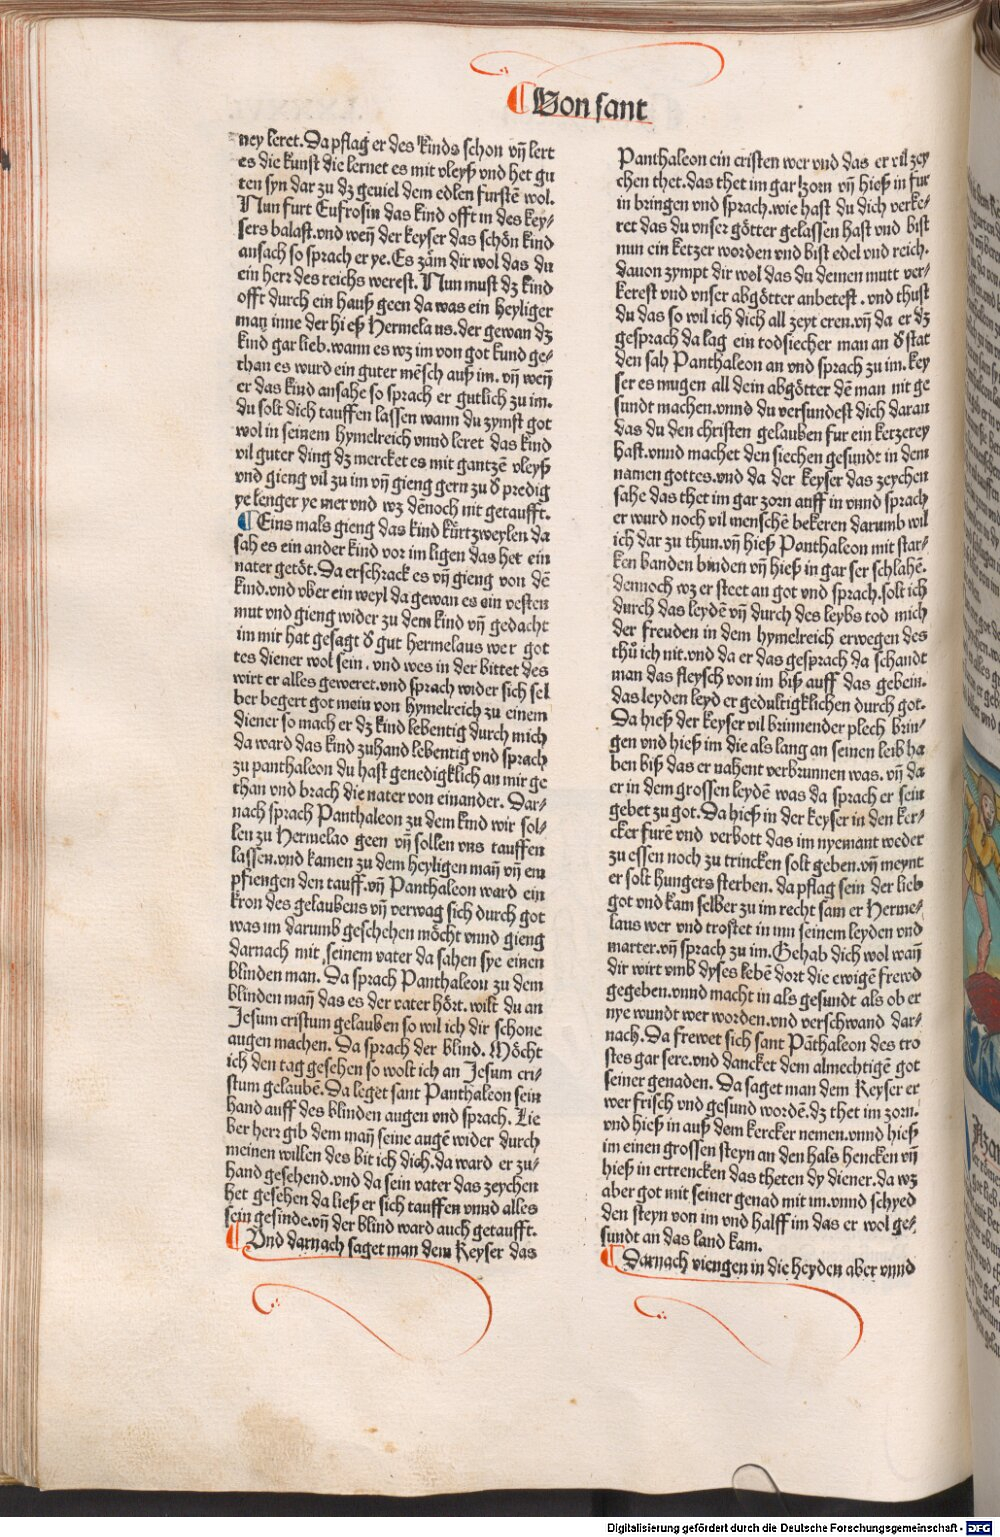 ¶ Von sant
ney leret. Da pflag er des kinds schon vñ lert
es die kunst die lernet es mit vleyß vnd het gu
ten syn dar zu dz geuiel dem edlen furstē wol.
Nun furt Eufrosin das kind offt in des key⸗
sers balast. vnd weñ der keyser das schön kind
ansach so sprach er ye. Es zäm dir wol das du
ein herr des reichs werest. Nun must dz kind
offt durch ein hauß geen da was ein heyliger
man inne der hieß Hermelaus. der gewan dz
kind gar lieb. wann es wz im von got kund ge⸗
than es wurd ein guter mēsch auß im. vñ weñ
er das kind ansahe so sprach er gutlich zu im.
du solt dich tauffen lassen wann du zymst got
wol in seinem hymelreich vnnd leret das kind
vil guter ding dz mercket es mit gantzē vleyß
vnd gieng vil zu im vñ gieng gern zu d̕ predig
ye lenger ye mer vnd wz dēnoch nit getaufft.
¶ Eins mals gieng das kind kürtzweylen da
sah es ein ander kind vor im ligen das het ein
nater getöt. Da erschrack es vñ gieng von dē
kind. vnd vber ein weyl da gewan es ein vesten
mut vnd gieng wider zu dem kind vñ gedacht
im mir hat gesagt d̕ gut hermelaus wer got
tes diener wol sein. vnd wes in der bittet des
wirt er alles geweret. vnd sprach wider sich sel
ber begert got mein von hymelreich zu einem
diener so mach er dz kind lebentig durch mich
da ward das kind zuhand lebentig vnd sprach
zu panthaleon du hast genedigklich an mir ge
than vnd brach die nater von einander. Dar⸗
nach sprach Panthaleon zu dem kind wir sol⸗
len zu Hermelao geen vñ sollen vns tauffen
lassen. vnd kamen zu dem heyligen mañ vñ em
pfiengen den tauff. vñ Panthaleon ward ein
kron des gelaubens vñ verwag sich durch got
was im darumb geschehen möcht vnnd gieng
darnach mit seinem vater da sahen sye einen
blinden man. Da sprach Panthaleon zu dem
blinden mañ das es der vater hört. wilt du an
Jesum cristum gelauben so wil ich dir schone
augen machen. Da sprach der blind. Möcht
ich den tag gesehen so wolt ich an Jesum cri⸗
stum gelaubē. Da leget sant Panthaleon sein
hand auff des blinden augen vnd sprach. Lie
ber herr gib dem mañ seine augē wider durch
meinen willen des bit ich dich. da ward er zu⸗
hand gesehend. vnd da sein vater das zeychen
het gesehen da ließ er sich tauffen vnnd alles
sein gesinde. vñ der blind ward auch getaufft.
¶ Vnd darnach saget man dem Keyser das
Panthaleon ein cristen wer vnd das er vil zey
chen thet. das thet im gar zorn vñ hieß in fur
in bringen vnd sprach. wie hast du dich verke⸗
ret das du vnser götter gelassen hast vnd bist
nun ein ketzer worden vnd bist edel vnd reich.
dauon zympt dir wol das du deinen mutt ver⸗
kerest vnd vnser abgötter anbetest. vnd thust
du das so wil ich dich all zeyt eren. vñ da er dz
gesprach da lag ein todsiecher man an d̕ stat
den sah Panthaleon an vnd sprach zu im. key
ser es mugen all dein abgötter dē man nit ge
sundt machen. vnnd du versundest dich daran
das du den christen gelauben fur ein ketzerey
hast. vnnd machet den siechen gesundt in dem
namen gottes. vnd da der keyser das zeychen
sahe das thet im gar zorn auff in vnnd sprach
er wurd noch vil menschē bekeren darumb wil
ich dar zu thun. vñ hieß Panthaleon mit star⸗
ken banden binden vñ hieß in gar ser schlahē.
dennoch wz er steet an got vnd sprach. solt ich
durch das leydē vñ durch des leybs tod mich
der freuden in dem hymelreich erwegen des
thů ich nit. vnd da er das gesprach da schandt
man das fleysch von im biß auff das gebein.
das leyden leyd er gedultigklichen durch got.
Da hieß der keyser vil brinnender plech brin⸗
gen vnd hieß im die als lang an seinen leib ha
ben biß das er nahent verbrunnen was. vñ da
er in dem grossen leydē was da sprach er sein
gebet zu got. Da hieß in der keyser in den ker⸗
cker furē vnd verbott das im nyemant weder
zu essen noch zu trincken solt geben. vñ meynt
er solt hungers sterben. da pflag sein der lieb
got vnd kam selber zu im recht sam er Herme⸗
laus wer vnd trostet in inn seinem leyden vnd
marter. vñ sprach zu im. Gehab dich wol wañ
dir wirt vmb dyses lebē dort die ewigē frewd
gegeben. vnnd macht in als gesundt als ob er
nye wundt wer worden. vnd verschwand dar⸗
nach. Da frewet sich sant Pāthaleon des tro
stes gar sere. vnd dancket dem almechtigē got
seiner genaden. Da saget man dem Keyser er
wer frisch vnd gesund wordē. dz thet im zorn.
vnd hieß in auß dem kercker nemen. vnnd hieß
im einen grossen steyn an den hals hencken vñ
hieß in ertrencken das theten dy diener. da wz
aber got mit seiner genad mit im. vnnd schyed
den steyn von im vnd halff im das er wol ge⸗
sundt an das land kam.
¶ Darnach viengen in die heyden aber vnnd
Digitalisierung gefördert durch die Deutsche Forschungsgemeinschaft - DFG